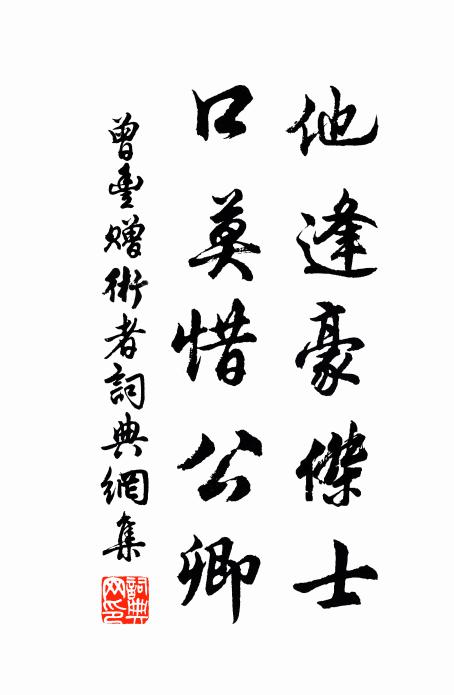 他逢豪傑士
口莫惜公卿
曾豊贈術者詞典網集
詞典網印